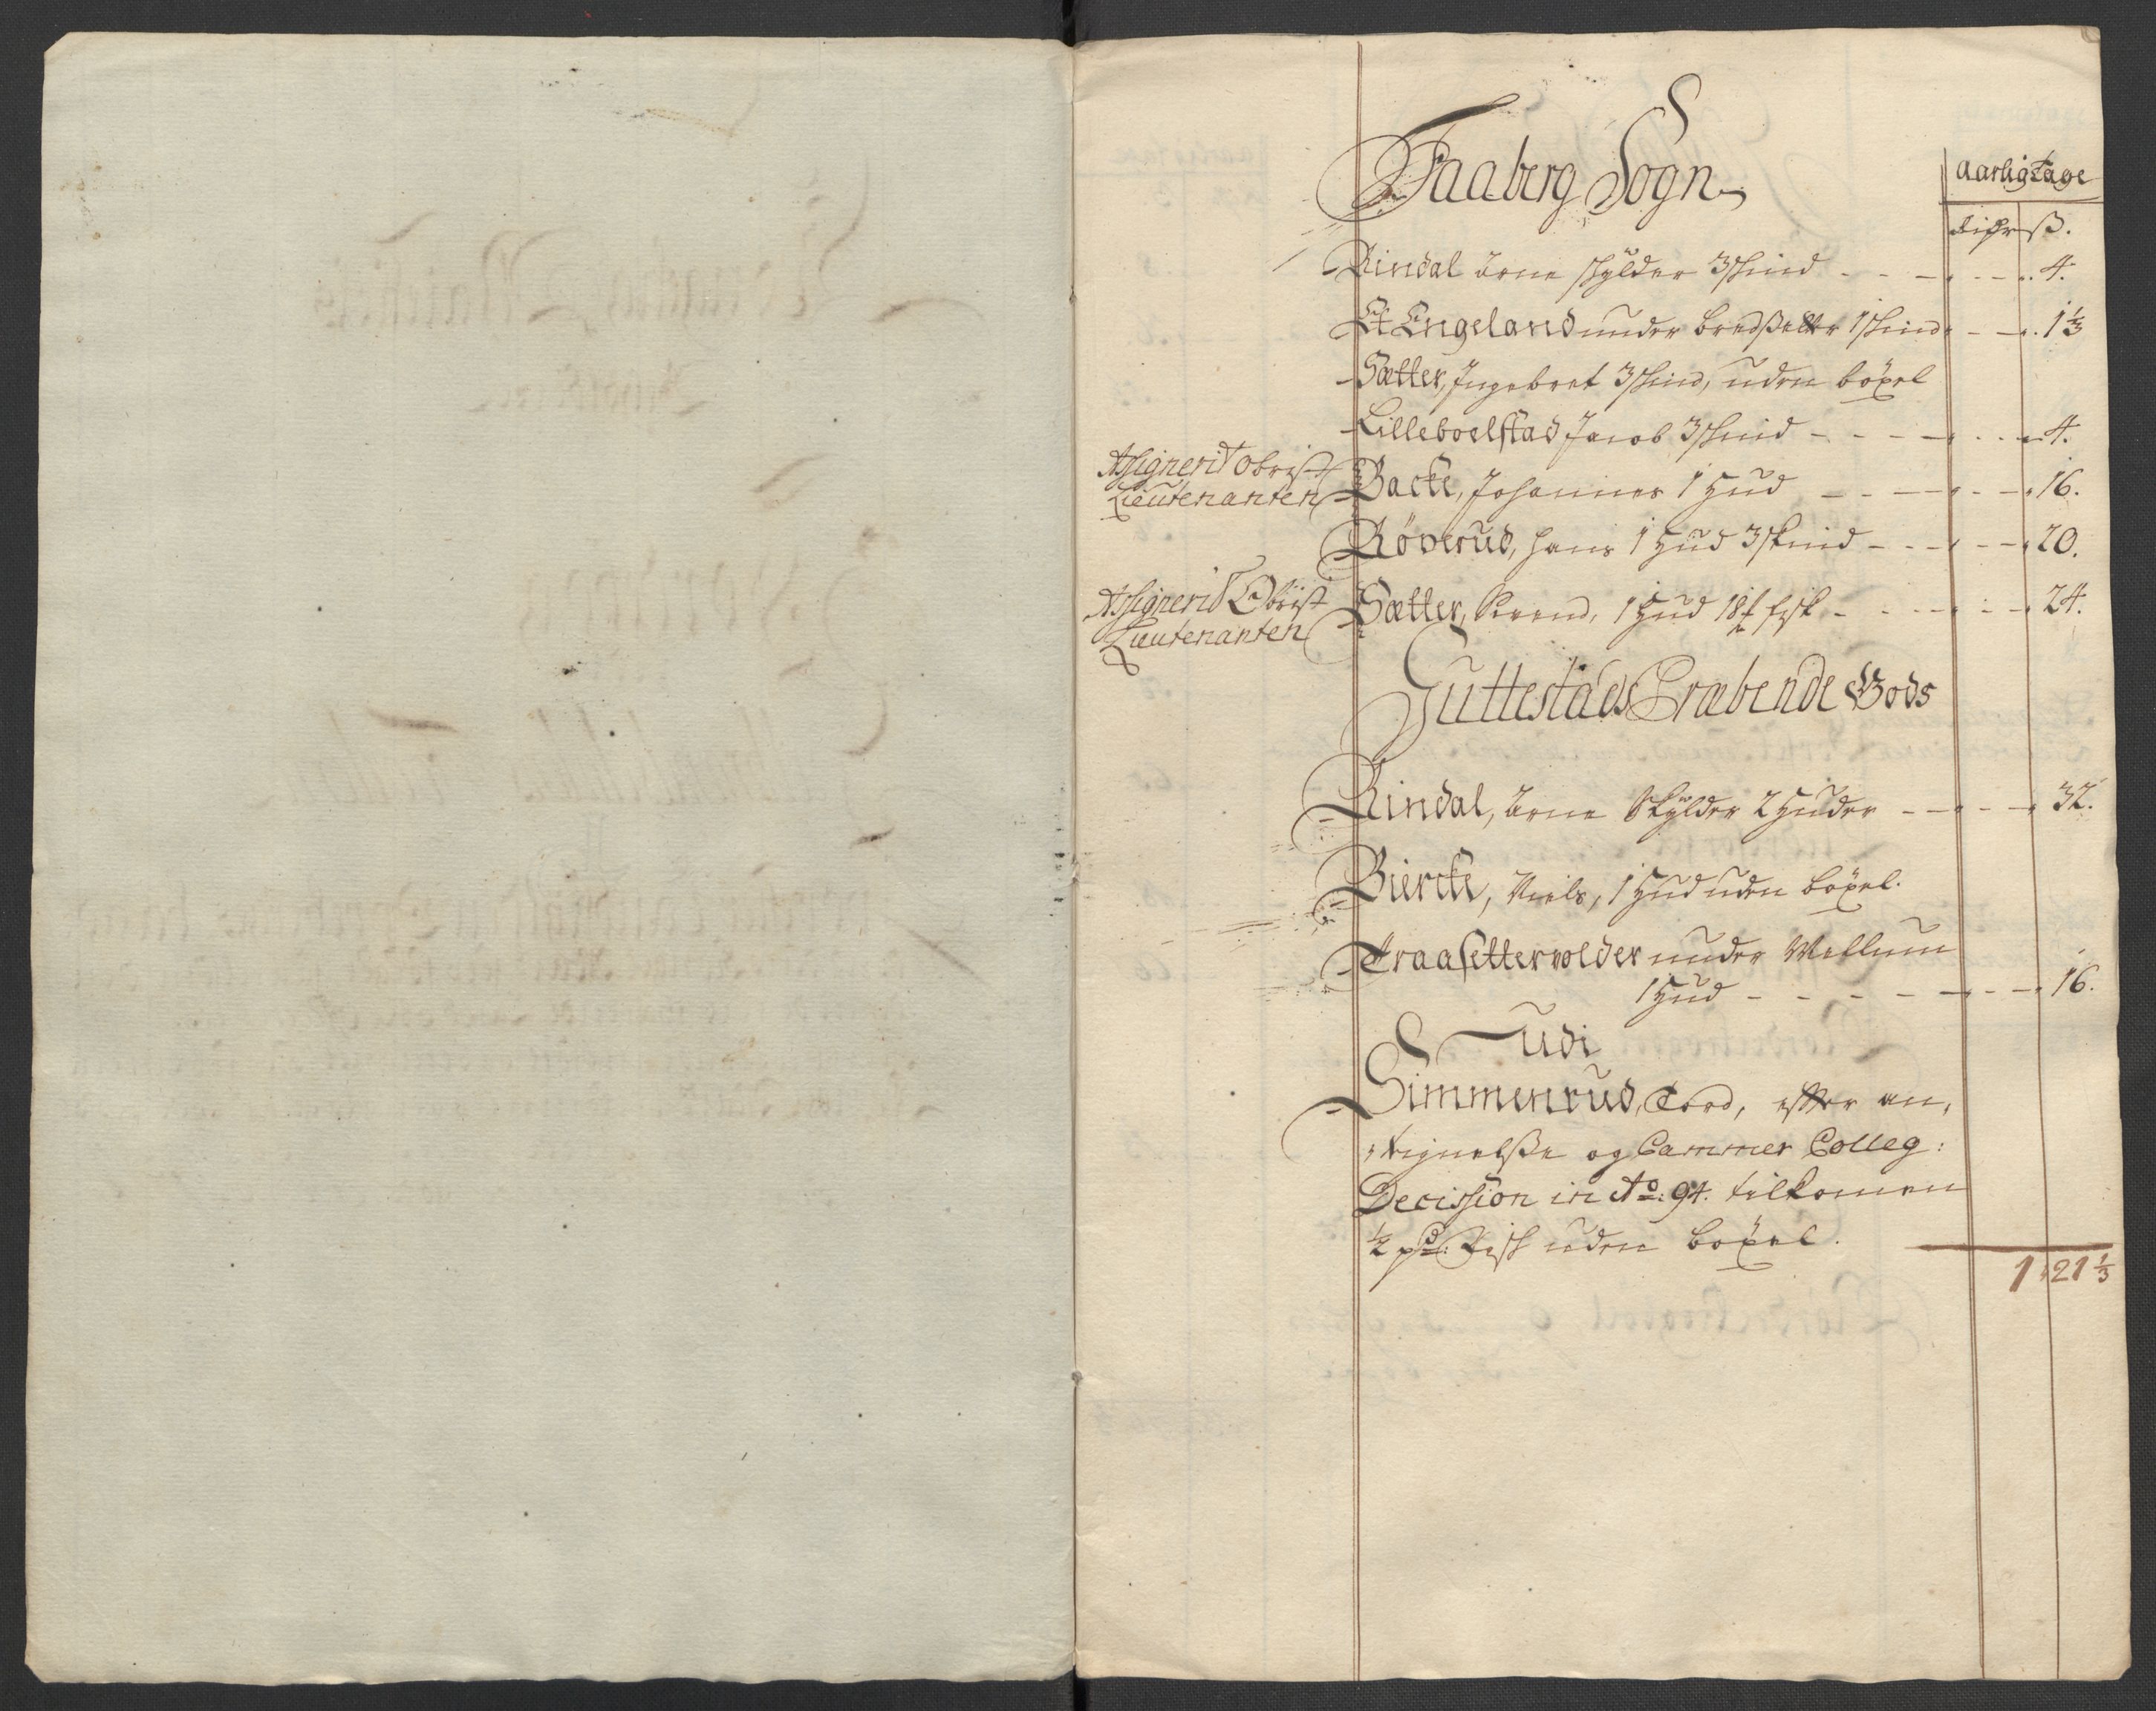 Faaberg Sogn
aarligtage
Rixdr ß.
Rindal Arne skylder 3 skind - - - - 4.
Et Engeland under Bredsætter 1 skind - - 1 1/3
Sætter, Ingebret 3 skind, uden böxel
Lilleboelstad Jacob 3 skind - - - - 4.
Assignerit Obrist
Lieutenanten
Backe, Johannes 1 Hud - - - - 16.
Röverud, Hans 1 Hud 3 skind - - - - 20.
Assignerit Obrist
Lieutenanten
Sætter, Svend, 1 Hud 18 ℔ fisk - - - - 24.
Juttestads Præbende Gods
Rindal, Arne Skylder 2 Huder - - - - 32.
Biercke, Niels, 1 Hud uden böxel.
Traasettervolder under Mellum
1 Hud - - - - 16.
Udi
Simmenrud, Tord, efter an,
tegnelße og Cammer Colleg:
Decission in Ao: 94. tilkommen
1/2 pd: Fisk uden böxel.
1 21 1/3